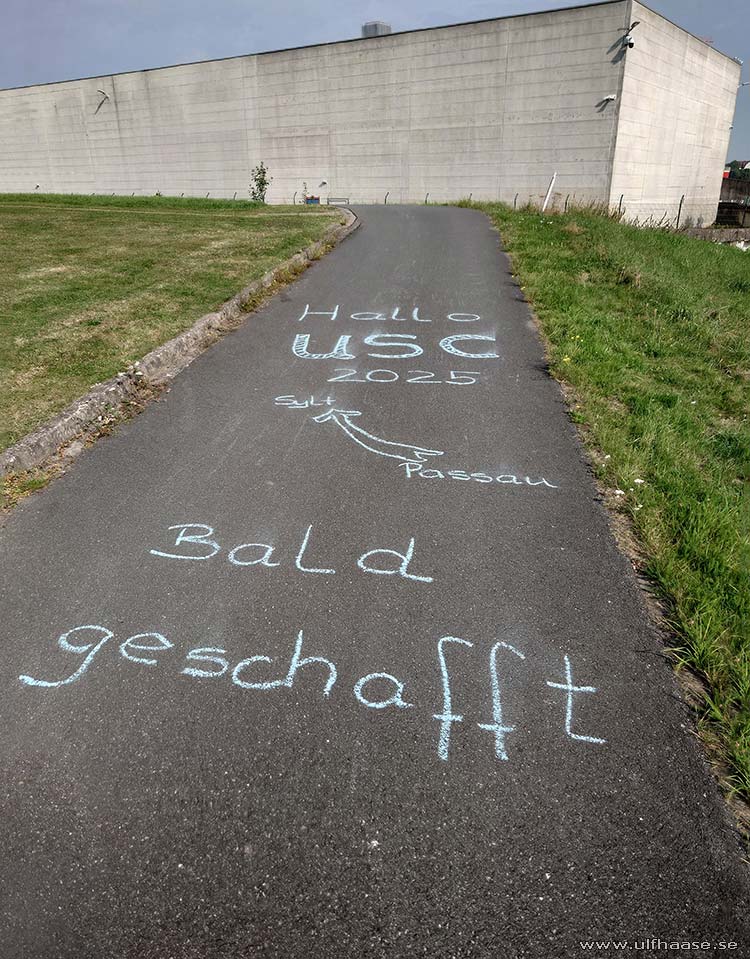 Hallo
USC
2025
Sylt
Passau
Bald
geschafft
www.ulfhaase.se